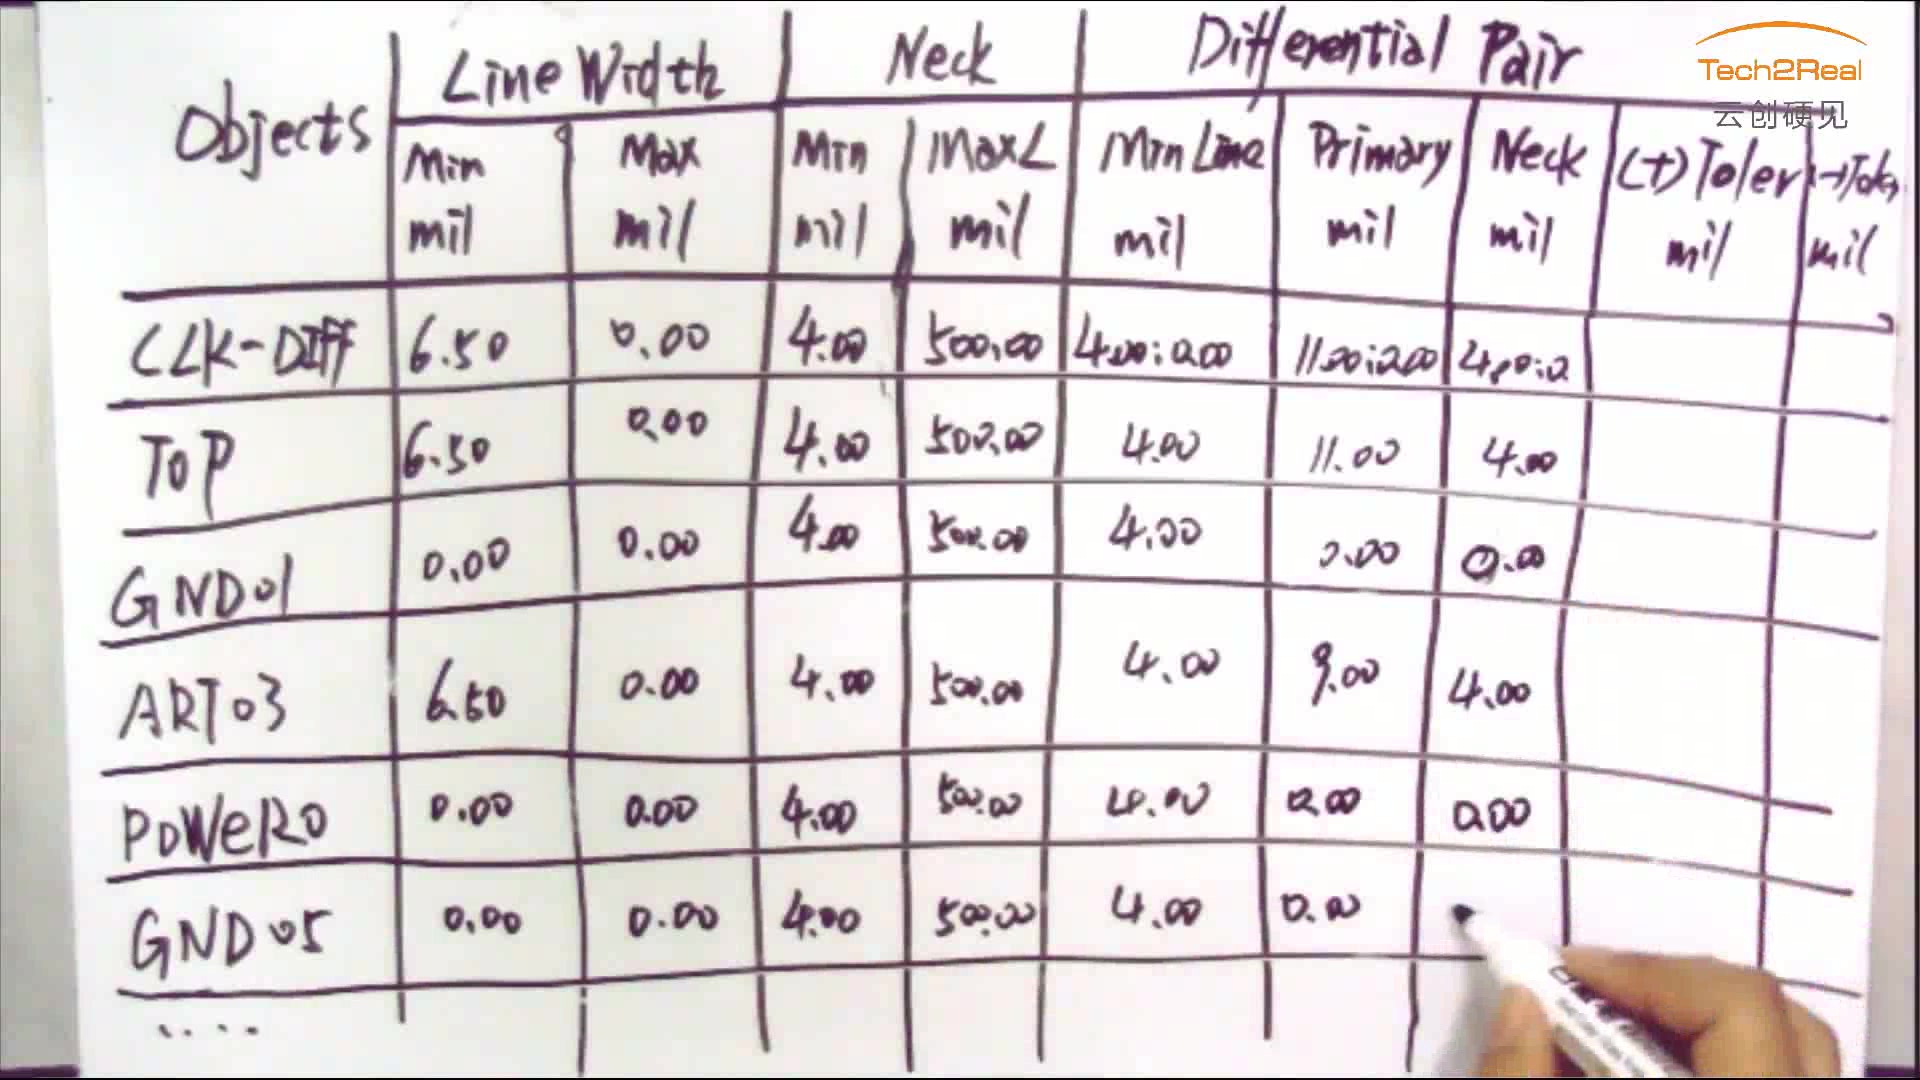 Tech2Real
云创硬见
Objects Line Width Neck Differential Pair
Min mil Max mil Min mil MaxL mil Min Line mil Primary mil Neck mil (+) Toler mil mil
CLK-DIFF 6.50 0.00 4.00 500.00 4.00:0.00 11.00:0.00 4.00:0
TOP 6.50 0.00 4.00 500.00 4.00 11.00 4.00
GND01 0.00 0.00 4.00 500.00 4.00 0.00 0.00
ART03 6.50 0.00 4.00 500.00 4.00 9.00 4.00
POWeR0 0.00 0.00 4.00 500.00 4.00 0.00 0.00
GND05 0.00 0.00 4.00 500.00 4.00 0.00
....